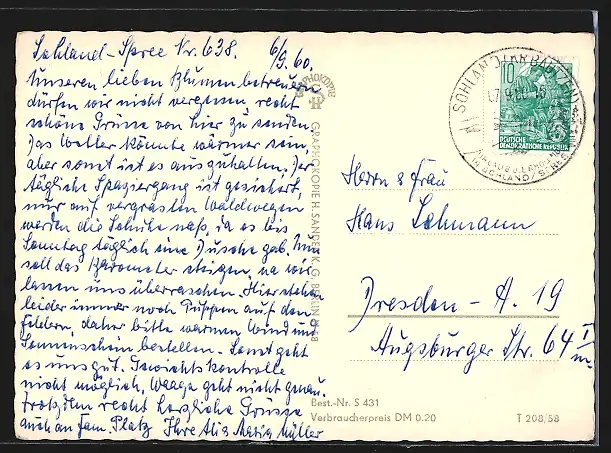 Sohland-Spree Nr. 638. 6/9.60.
Unseren lieben Blumenbetreuern
dürfen wir nicht vergessen, recht
schöne Grüsse von hier zu senden.
Das Wetter könnte wärmer sein,
aber sonst ist es auszuhalten. Der
tägliche Spaziergang ist gesichert,
nur auf vergrasten Waldwegen
werden die Schuhe naß, da es bis
Sonntag täglich eine Dusche gab. Nun
soll das Barometer steigen, na wir
lassen uns überraschen. Hier stehen
leider immer noch Puppen auf den
Feldern, daher bitte warmen Wind und
Sonnenschein bestellen. Sonst geht
es uns gut. Gewichtskontrolle
nicht möglich, Waage geht nicht genau.
Trotzdem recht herzliche Grüsse
auch an Fam. Platz Ihre Maria Müller
GRAPHOKOPIE
GRAPHOKOPIE H. SANDER K. G. BERLIN
SOHLAND
10
DEUTSCHE
DEMOKRATISCHE REPUBLIK
Herrn & Frau
Hans Lehmann
Dresden - A. 19
Augsburger Str. 64 I/m.
Best.-Nr. S 431
Verbraucherpreis DM 0.20
T 208/58